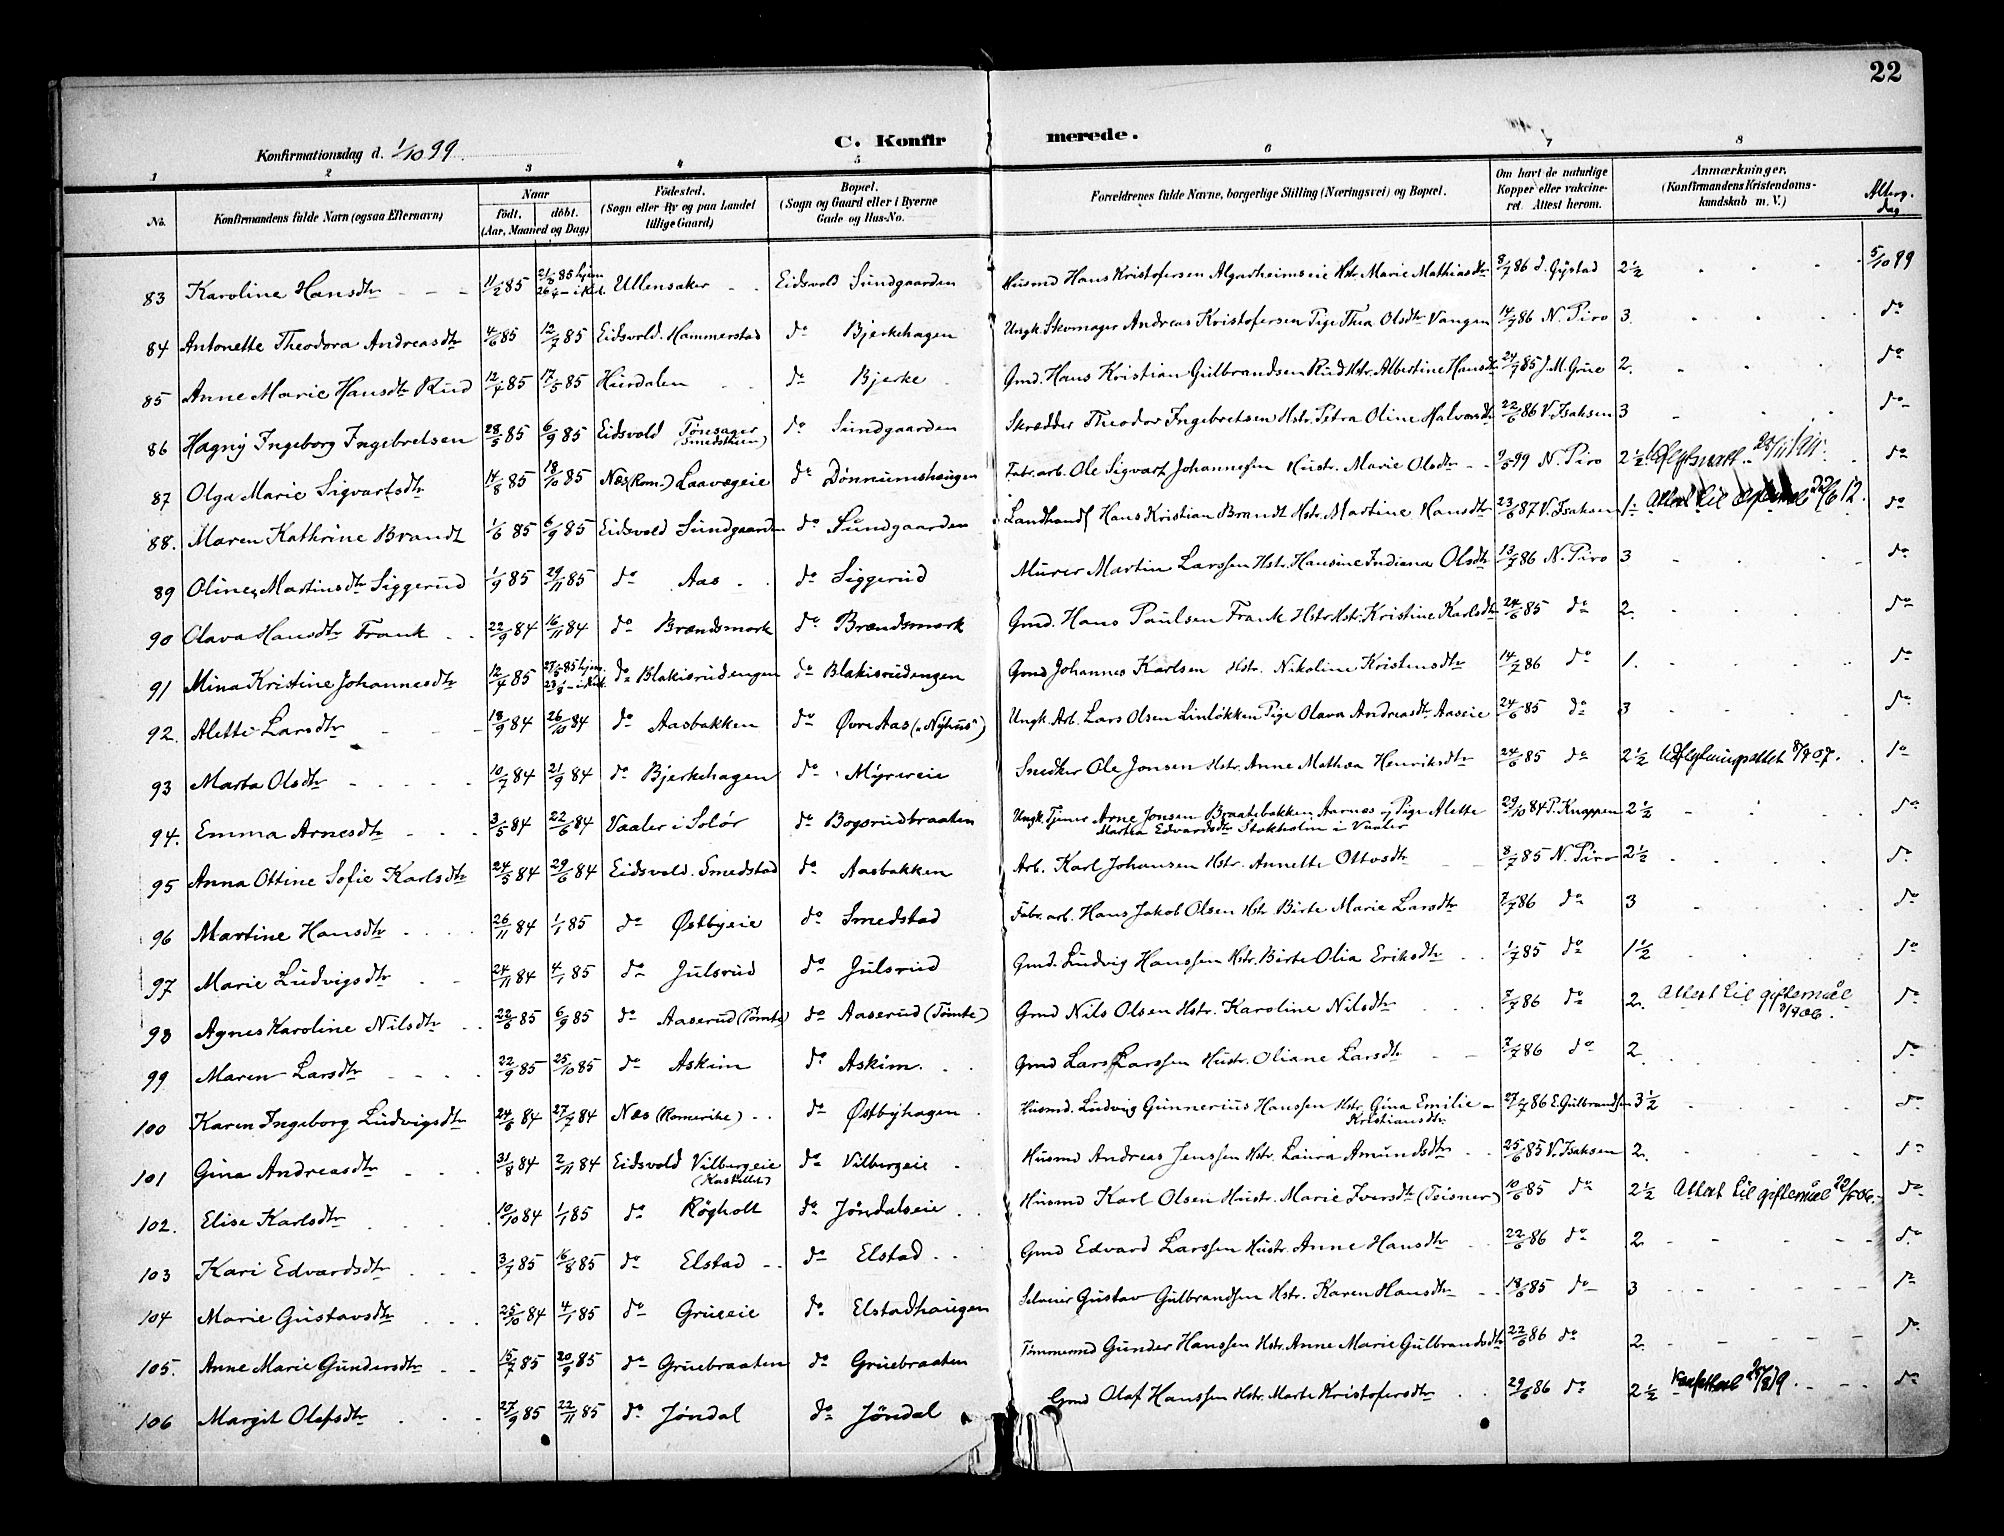 22
C. Konfir merede.
Konfirmationsdag d. 1/10 99.
1 2 3 4 5 6 7 8
No. Konfirmandens fulde Navn (ogsaa Efternavn) Naar født, døbt. (Aar, Maaned og Dag) Fødested. (Sogn eller By og paa Landet tillige Gaard) Bopæl. (Sogn og Gaard eller i Byerne Gade og Hus-No. Forældrenes fulde Navne, borgerlige Stilling (Næringsvei) og Bopæl. Om havt de naturlige Kopper eller vakcineret. Attest herom. Anmærkninger. (Konfirmandens Kristendomskundskab m. V.) Alterg. dag
83 Karoline Hansdtr 11/2 85 21/3 85 hjem 26/4 – i Kirk. Ullensaker Eidsvold Sundgaarden Husmd Hans Kristofersen Algarheimseie Hstr. Marie Mathiasdtr 8/7 86 d. Gystad 2½ 5/10 99
84 Antonette Theodora Andreasdtr 4/6 85 12/7 85 Eidsvold. Hammerstad do Bjerkehagen Ungk. Skomager Andreas Kristofersen Pige Thea Olsdtr Vangen 14/7 86 N. Piro 3. do
85 Anne Marie Hansdtr Rud 12/4 85 17/5 85 Hurdalen do Bjerke Gmd. Hans Kristian Gulbrandsen Rud Hstr. Albertine Hansdtr 24/7 85 J. M. Grue 2. do
86 Hagny Ingeborg Ingebretsen 28/5 85 6/9 85 Eidsvold Tønsager do Sundgaarden Skrædder Theodor Ingebretsen Hstr. Petra Oline Halvorsdtr 22/6 86 V. Isaksen 3 do
87 Olga Marie Sigvartsdtr 14/8 85 18/10 85 Næs (Rom.) Laavegeie do Dønnumshaugen Fabr. arb. Ole Sigvart Johannessen Hustr. Marie Olsdtr 9/5 99 N. Piro 2½ do
88. Maren Kathrine Brandt 1/6 85 6/9 85 Eidsvold Sundgaarden do Sundgaarden Landhandl Hans Kristian Brandt Hstr. Martine Hansdtr 23/6 87 V. Isaksen 1. Attest til 22/6 12. do
89 Oline Martinsdtr Siggerud 1/9 85 29/11 85 do Aas do Siggerud Murer Martin Larssen Hstr. Hansine Indiana Olsdtr 13/7 86 N. Piro 3 do
90 Olava Hansdtr Frank 22/9 84 16/11 84 do Brændsmork do Brændsmork Gmd. Hans Paulsen Frank Hstr. Kristine Karlsdtr 24/6 85 do 2. do
91 Mina Kristine Johannesdtr 12/4 85 27/5 85 hjem. 23/8 – i Kirk. do Blakisrudengen do Blakisrudengen Gmd Johannes Karlsen Hstr. Nikoline Kristensdtr 14/7 86 do 1. do
92. Alette Larsdtr 18/9 84 26/10 84 do Aasbakken do Øvre Aas („Nyhus") Ungk. Arb. Lars Olsen Linløkken Pige Olava Andreasdtr Aaseie 24/6 85 do 3 do
93 Marta Olsdtr 10/7 84 21/9 84 do Bjerkehagen do Myrereie Snedker Ole Jonsen Hstr. Anne Mathea Henriksdtr 24/6 85 do 2½ Udflytningsattest 8/9 07. do
94. Emma Arnesdtr 3/5 84 22/6 84 Vaaler i Solør do Bogsrudbraaten Ungk. Tjener Arne Jonsen Braatebakken, Aarnes og Pige Alette Martha Edvardsdtr Stokholm i Vaaler 29/10 84 P. Knappen 2½ do
95 Anna Ottine Sofie Karlsdtr 24/5 84 29/6 84 Eidsvold. Smedstad do Aasbakken Arb. Karl Johansen Hstr. Annette Ottosdtr 8/7 85 N. Piro 2½ do
96 Martine Hansdtr 26/11 84 1/1 85 do Østbyeie do Smedstad Fabr. arb. Hans Jakob Olsen Hstr. Birte Marie Larsdtr 7/7 86 do 3 do
97 Marie Ludvigsdtr 24/11 84 4/1 85 do Julsrud do Julsrud Gmd. Ludvig Hanssen Hstr. Birte Olia Eriksdtr 1/7 85 do 1½ do
98 Agnes Karoline Nilsdtr 22/6 85 6/9 85 do Aaserud (Tømte) do Aaserud (Tømte) Gmd Nils Olsen Hstr. Karoline Nilsdtr 7/7 86 do 2. Attest til giftemål 3/9 06. do
99 Maren Larsdtr 22/9 85 25/10 85 do Askim do Askim. Gmd Lars Larssen Hustr. Oliane Larsdtr 7/7 86 do 2. do
100 Karen Ingeborg Ludvigsdtr 24/6 84 27/7 84 Næs (Romerike) do Østbyhagen Husmd. Ludvig Gunnerius Hanssen Hstr. Gina Emilie Kristiansdtr 27/7 86 E. Gulbrandsen 3½ do
101 Gina Andreasdtr 31/8 84 2/11 84 Eidsvold Vilbergeie (Kastellet) do Vilbergeie Husmd Andreas Jenssen Hstr. Laura Amundsdtr 25/6 85 V. Isaksen 2. do
102. Elise Karlsdtr 10/10 84 1/1 85 do Røgholt do Jøndalseie Husmd Karl Olsen Hustr. Marie Iversdtr (Teisner) 10/6 85 do 2½ Attest til giftemål 22/5 06. do
103 Kari Edvardsdtr 3/7 85 16/8 85 do Elstad do Elstad Gmd Edvard Larssen Hustr. Anne Hansdtr 22/6 86 do 2 do
104 Marie Gustavsdtr 25/10 84 4/1 85 do Grueeie do Elstadhaugen Selveier Gustav Gulbrandsen Hstr. Karen Hansdtr 18/6 85 do 3 do
105. Anne Marie Gundersdtr 15/7 85 20/9 85 do Gruebraaten do Gruebraaten Tømmermd Gunder Hanssen Hstr. Anne Marie Gulbrandsdtr 22/6 86 do 2. do
106 Margit Olafsdtr 27/9 85 22/11 85 do Jøndal do Jøndal Gmd Olaf Hanssen Hstr. Marte Kristofersdtr 29/6 86 do 2½ do